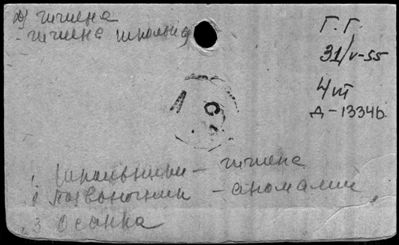 гигиена
- гигиена школьн
Г. Г.
31/V-55
4 т
Д-13346
1 школьники - гигиена
2 позвоночник - аномалии
3 Осанка